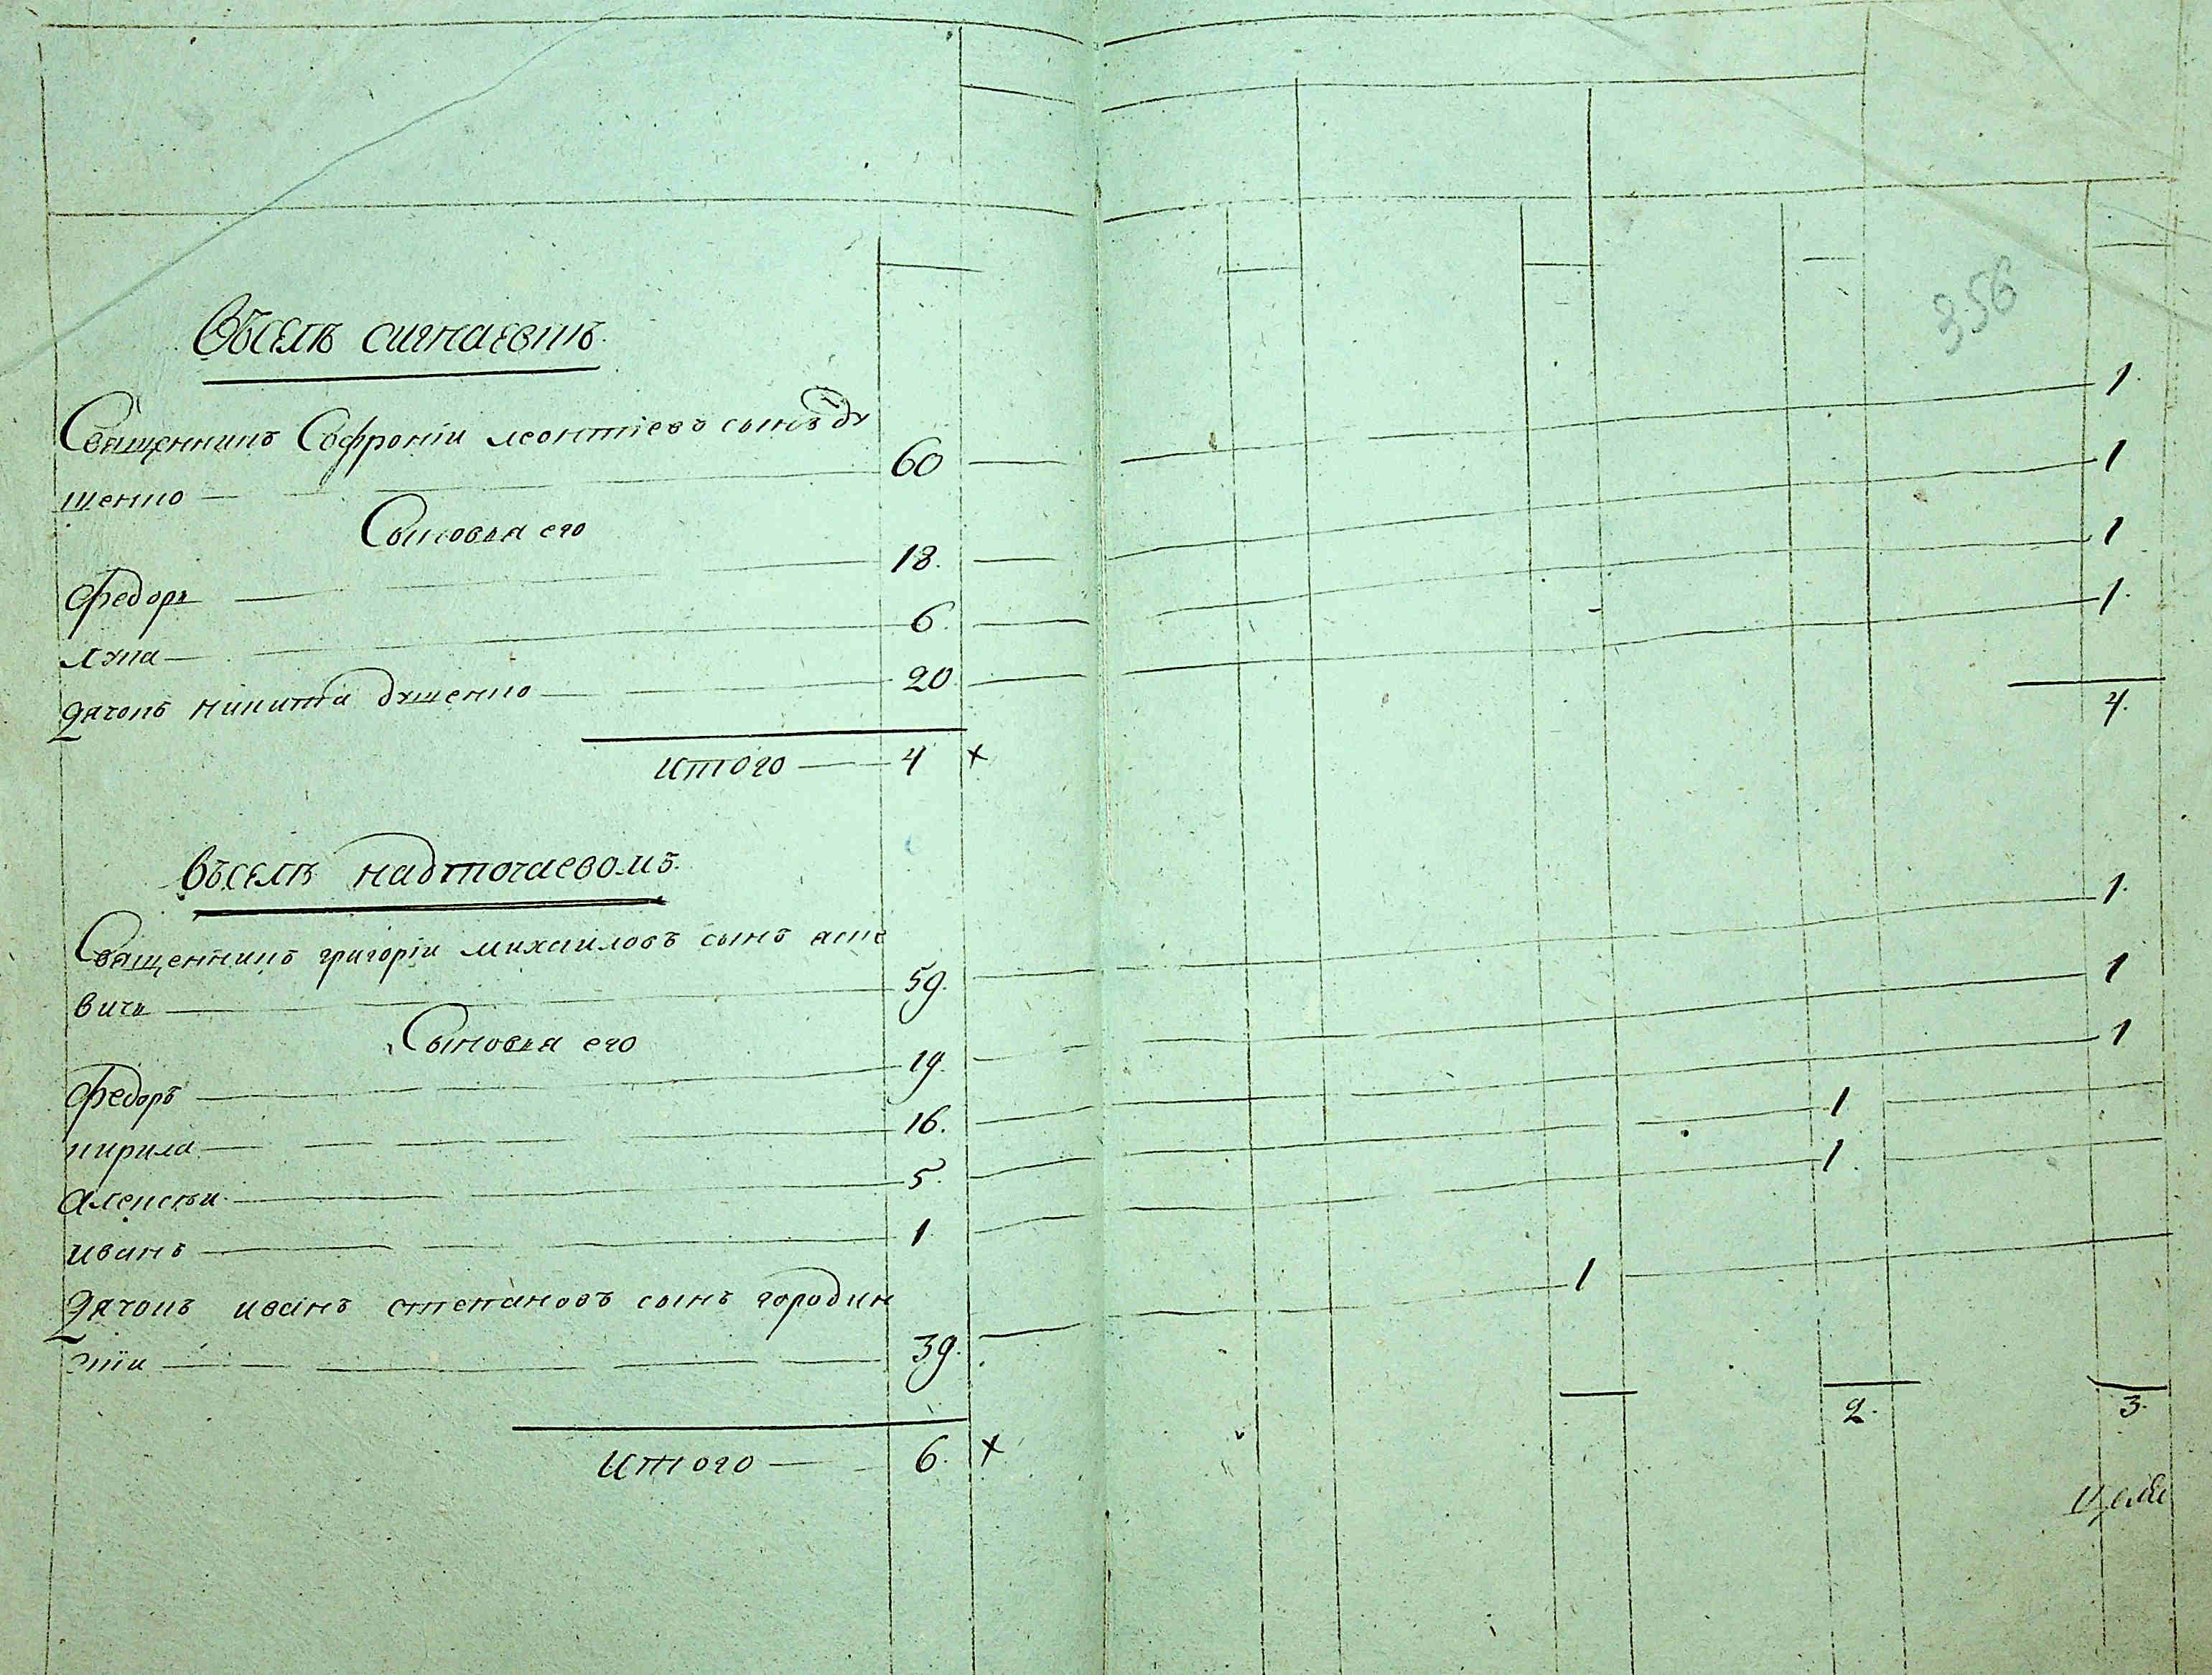 356
Въселѣ сигнаевкѣ.
Священникъ Софроніи леонтіевъ сынъ ду
шенко 60 1.
Сыновья его
Федоръ 18. 1
лука 6. 1
Дячокъ никита душенко 20. 1.
Итого 4 × 4.
Въселѣ надточаевомъ.
Священникъ григоріи михаиловъ сынъ яще
вичъ 59. 1.
Сыновья его
Федоръ 19. 1
кирила 16. 1
алексѣи 5. 1
иванъ 1 1.
Дячокъ иванъ степановъ сынъ городин
скіи 39. 1
2. 3.
Итого 6. ×